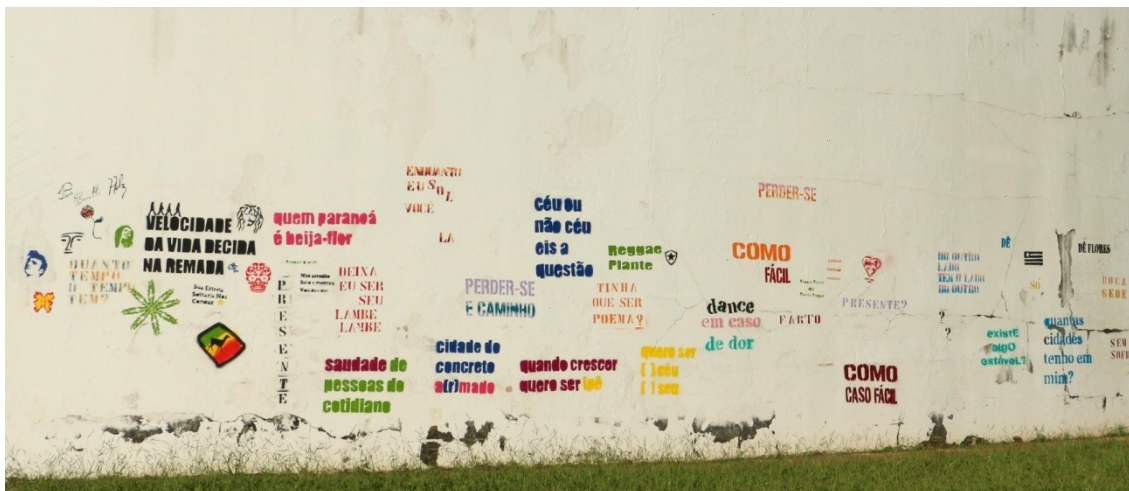 QUANTO
TEMPO
O TEMPO
TEM?
VELOCIDADE
DA VIDA DECIDA
NA REMADA
quem paranoá
é beija-flor
PRESENTE
DEIXA
EU SER
SEU
LAMBE
LAMBE
saudade de
pessoas do
cotidiano
ENQUANTO
EU SOL
VOCÊ
LA
PERDER-SE
E CAMINHO
cidade do
concreto
a(r)mado
céu ou
não céu
eis a
questão
quando crescer
quero ser ipê
Reggae
Plante
TINHA
QUE SER
POEMA?
quero ser
[ ]céu
[ ]seu
PERDER-SE
COMO
FÁCIL
dance
em caso
de dor
FARTO
PRESENTE?
COMO
CASO FÁCIL
DO OUTRO
LADO
TEM O LADO
DO OUTRO
?
?
DÊ
SÓ
existe
algo
estável?
quantas
cidades
tenho em
mim?
DÊ FLORES
BOCA
SEDE
SEM